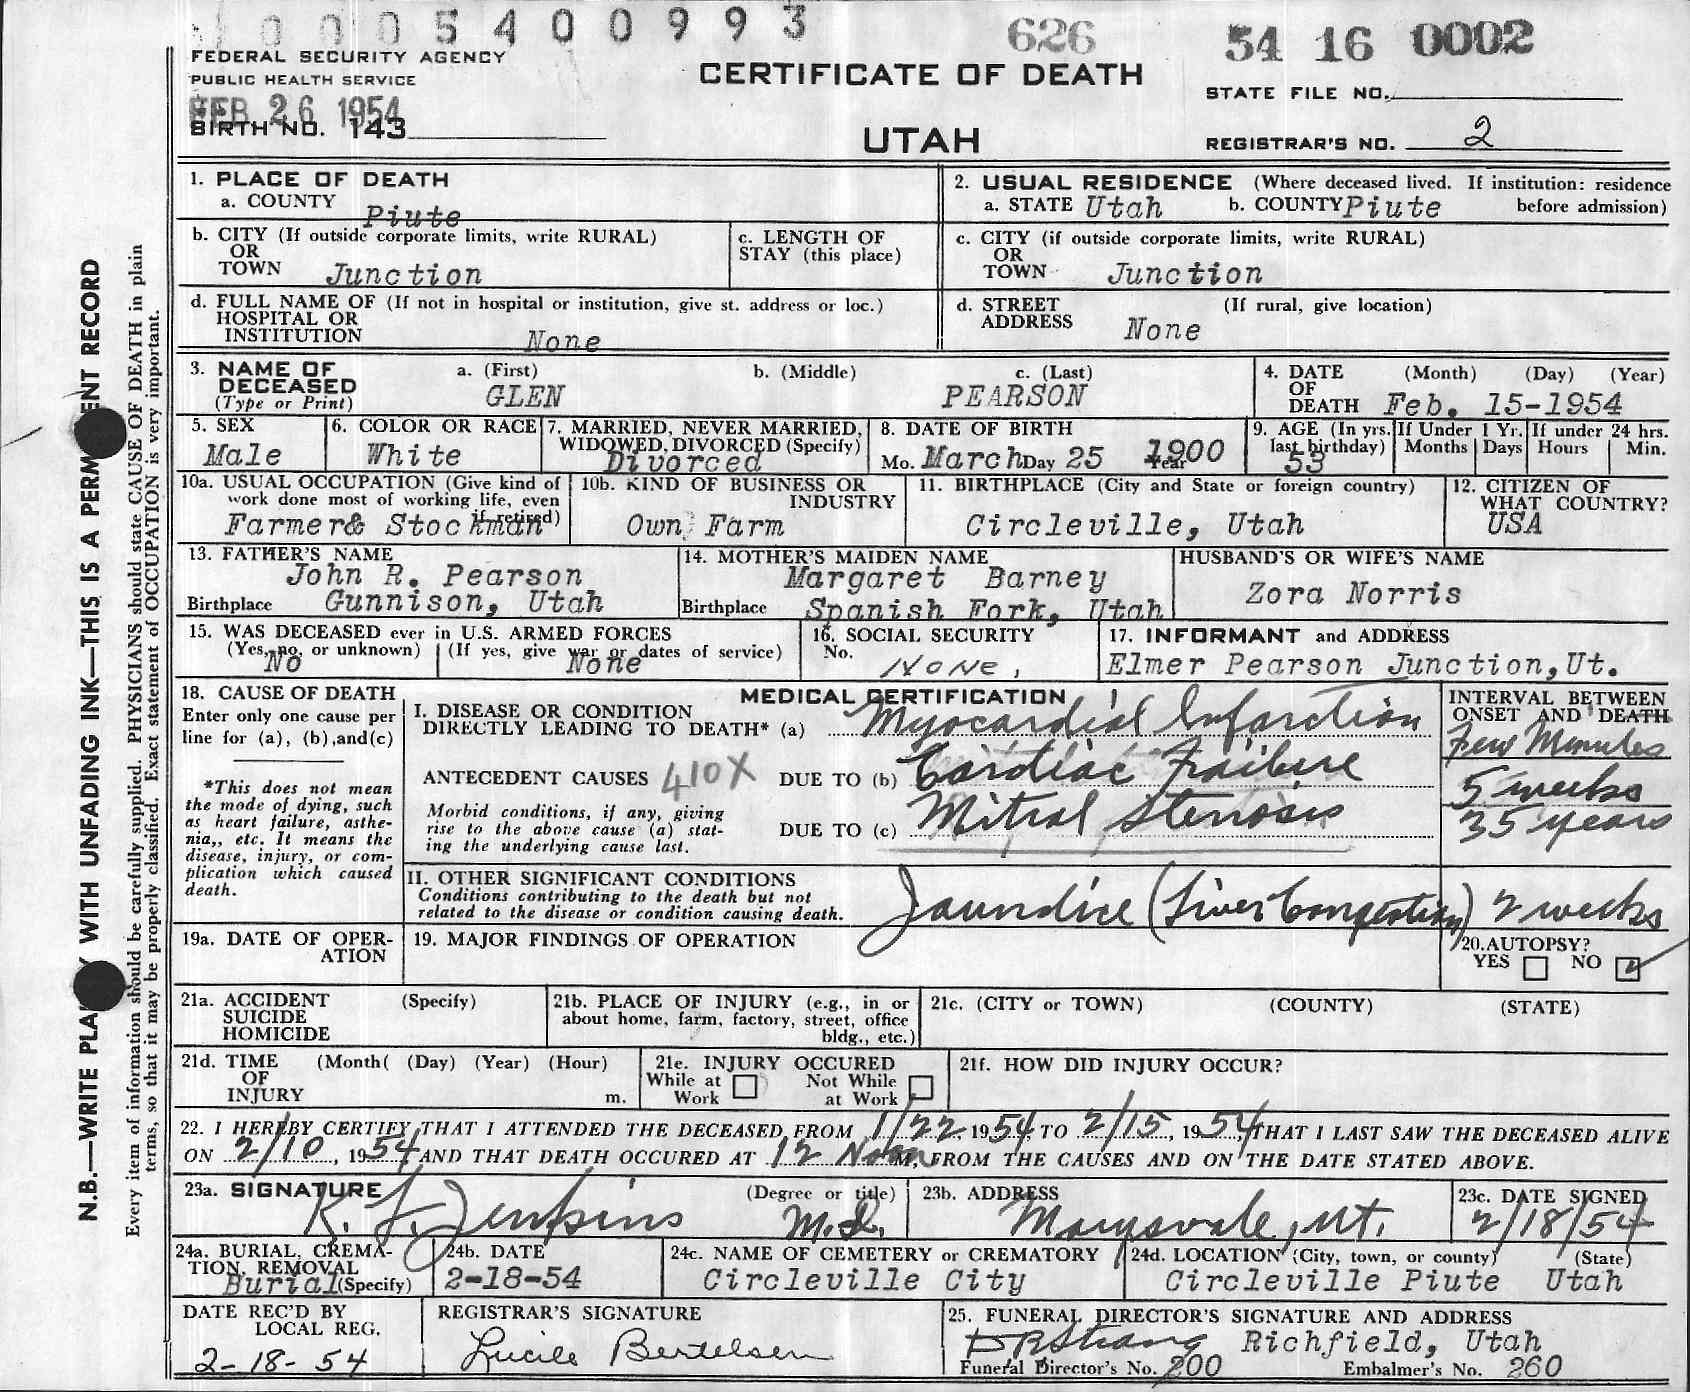 0005400993
626
54 16 0002
FEDERAL SECURITY AGENCY
PUBLIC HEALTH SERVICE
CERTIFICATE OF DEATH
STATE FILE NO.
FEB 26 1954
BIRTH NO. 143
UTAH
REGISTRAR'S NO. 2
1. PLACE OF DEATH
a. COUNTY Piute
2. USUAL RESIDENCE (Where deceased lived. If institution: residence before admission)
a. STATE Utah b. COUNTY Piute
b. CITY (If outside corporate limits, write RURAL)
OR
TOWN Junction
c. LENGTH OF
STAY (this place)
c. CITY (if outside corporate limits, write RURAL)
OR
TOWN Junction
d. FULL NAME OF (If not in hospital or institution, give st. address or loc.)
HOSPITAL OR
INSTITUTION None
d. STREET (If rural, give location)
ADDRESS None
3. NAME OF DECEASED
(Type or Print)
a. (First) GLEN
b. (Middle)
c. (Last) PEARSON
4. DATE OF DEATH (Month) (Day) (Year)
Feb. 15-1954
5. SEX
Male
6. COLOR OR RACE
White
7. MARRIED, NEVER MARRIED,
WIDOWED, DIVORCED (Specify)
Divorced
8. DATE OF BIRTH
Mo. March Day 25 Year 1900
9. AGE (In yrs. last birthday)
53
If Under 1 Yr.
Months Days
If under 24 hrs.
Hours Min.
10a. USUAL OCCUPATION (Give kind of
work done most of working life, even
if retired)
Farmer& Stockman
10b. KIND OF BUSINESS OR
INDUSTRY
Own Farm
11. BIRTHPLACE (City and State or foreign country)
Circleville, Utah
12. CITIZEN OF
WHAT COUNTRY?
USA
13. FATHER'S NAME
John R. Pearson
Birthplace Gunnison, Utah
14. MOTHER'S MAIDEN NAME
Margaret Barney
Birthplace Spanish Fork, Utah
HUSBAND'S OR WIFE'S NAME
Zora Norris
15. WAS DECEASED ever in U.S. ARMED FORCES
(Yes, no, or unknown) (If yes, give war or dates of service)
No None
16. SOCIAL SECURITY
No. None,
17. INFORMANT and ADDRESS
Elmer Pearson Junction, Ut.
18. CAUSE OF DEATH
Enter only one cause per
line for (a), (b),and(c)
*This does not mean
the mode of dying, such
as heart failure, asthe-
nia,, etc. It means the
disease, injury, or com-
plication which caused
death.
MEDICAL CERTIFICATION
I. DISEASE OR CONDITION
DIRECTLY LEADING TO DEATH* (a) Myocardial Infarction
ANTECEDENT CAUSES 410X DUE TO (b) Cardiac Failure
Morbid conditions, if any, giving
rise to the above cause (a) stat-
ing the underlying cause last.
DUE TO (c) Mitral Stenosis
INTERVAL BETWEEN
ONSET AND DEATH
Few Minutes
5 weeks
35 years
II. OTHER SIGNIFICANT CONDITIONS
Conditions contributing to the death but not
related to the disease or condition causing death.
Jaundice (Liver Congestion) 2 weeks
19a. DATE OF OPER-
ATION
19. MAJOR FINDINGS OF OPERATION
20.AUTOPSY?
YES NO
21a. ACCIDENT (Specify)
SUICIDE
HOMICIDE
21b. PLACE OF INJURY (e.g., in or
about home, farm, factory, street, office
bldg., etc.)
21c. (CITY or TOWN) (COUNTY) (STATE)
21d. TIME (Month( (Day) (Year) (Hour)
OF
INJURY m.
21e. INJURY OCCURED
While at Work
Not While at Work
21f. HOW DID INJURY OCCUR?
22. I HEREBY CERTIFY THAT I ATTENDED THE DECEASED FROM 1/22, 1954, TO 2/15, 1954, THAT I LAST SAW THE DECEASED ALIVE
ON 2/10, 1954 AND THAT DEATH OCCURED AT 12 Noon M. FROM THE CAUSES AND ON THE DATE STATED ABOVE.
23a. SIGNATURE (Degree or title)
K. L. Jenkins M.D.
23b. ADDRESS
Marysvale, Ut.
23c. DATE SIGNED
2/18/54
24a. BURIAL, CREMA-
TION, REMOVAL
Burial (Specify)
24b. DATE
2-18-54
24c. NAME OF CEMETERY or CREMATORY
Circleville City
24d. LOCATION (City, town, or county) (State)
Circleville Piute Utah
DATE REC'D BY
LOCAL REG.
2-18-54
REGISTRAR'S SIGNATURE
Lucile Bertelsen
25. FUNERAL DIRECTOR'S SIGNATURE AND ADDRESS
Richfield, Utah
Funeral Director's No. 200 Embalmer's No. 260
N.B.—WRITE PLA WITH UNFADING INK—THIS IS A PERM ENT RECORD
Every item of information should be carefully supplied. PHYSICIANS should state CAUSE OF DEATH in plain
terms, so that it may be properly classified. Exact statement of OCCUPATION is very important.